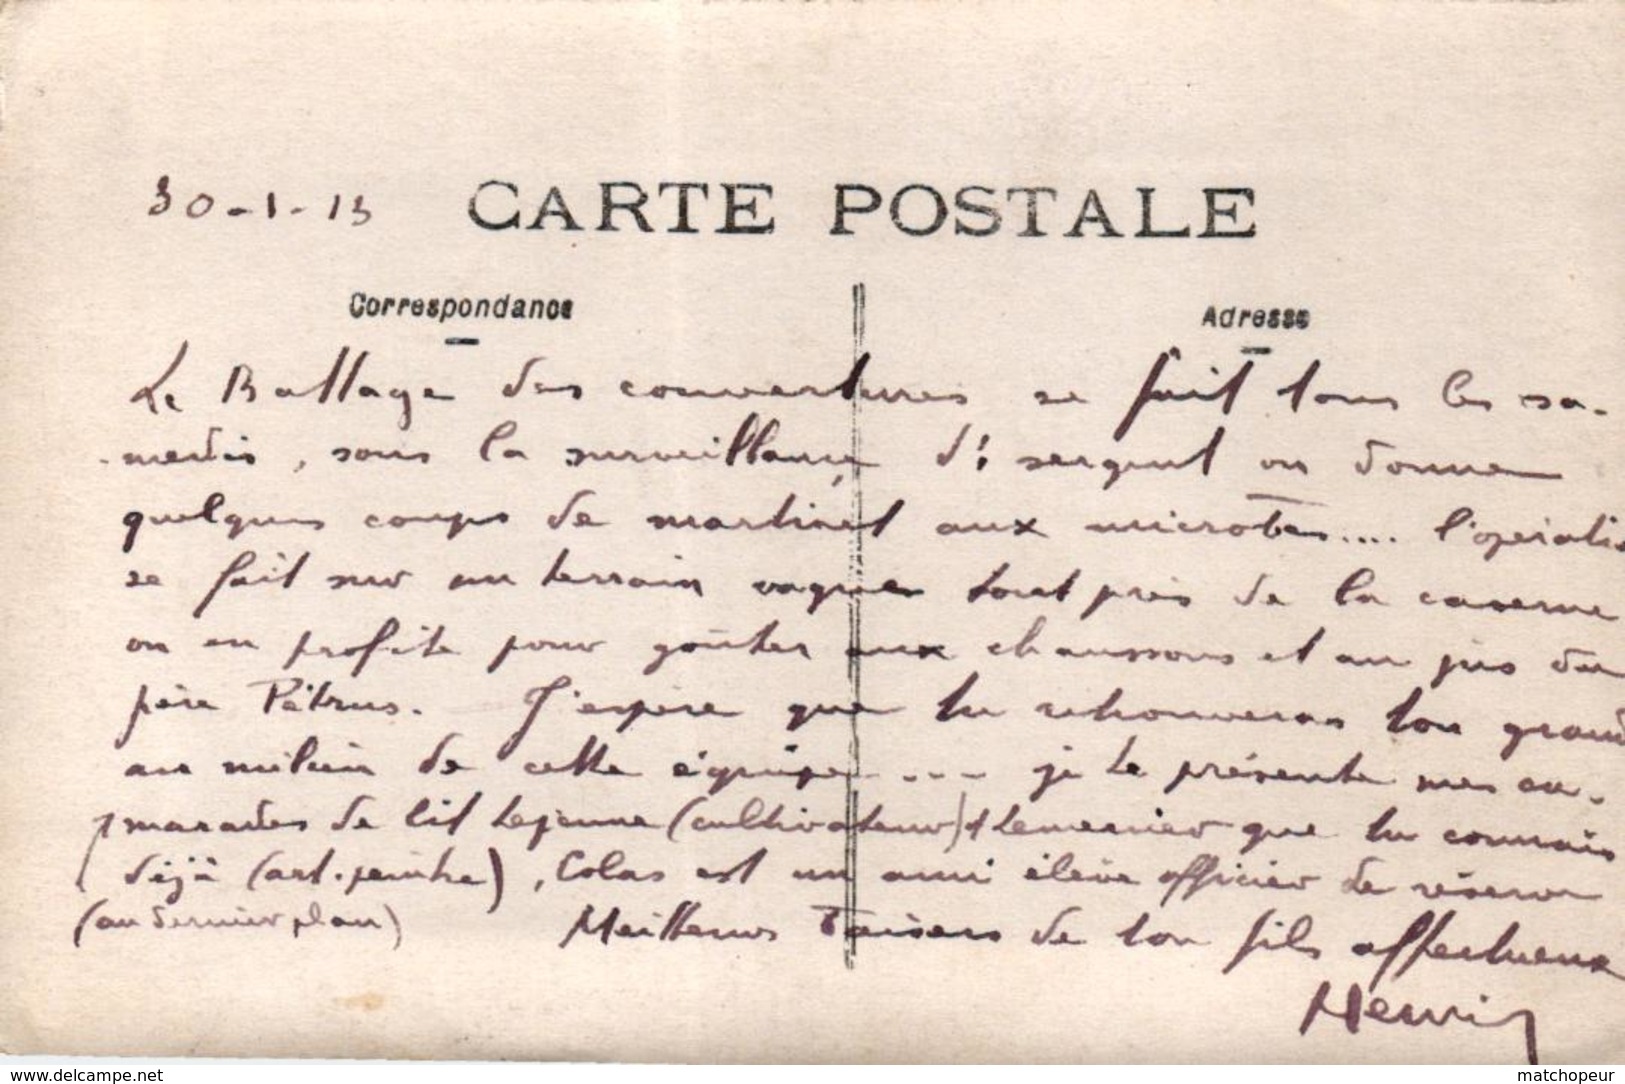 30-1-13
CARTE POSTALE
Correspondance
Adresse
Le Battage des couvertures se fait tous les sa-
medis, sous la surveillance d'1 sergent on donne
quelques coups de martinet aux microbes.... l'opératio
se fait sur un terrain vague tout près de la caserne
on en profite pour goûter aux chaussons et au jus du
père Pétrus. J'espère que tu retrouveras ton grand
au milieu de cette équipe .... je te présente mes ca-
marades de lit Lejeune (cultivateur) et Lemercier que tu connais
déjà (art. peintre), Colas est un ami élève officier de réserve
(au dernier plan) Meilleurs Baisers de ton fils affectueux
Henri
www.delcampe.net
matchopeur